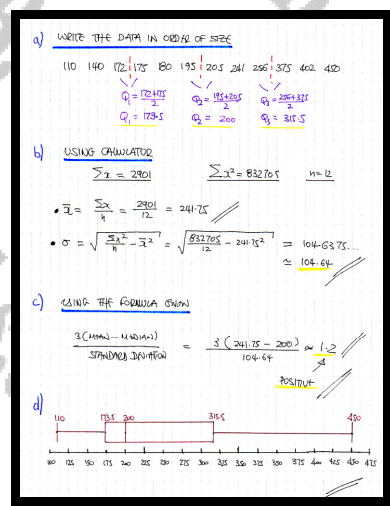 a) WRITE THE DATA IN ORDER OF SIZE
110 140 172 175 180 195 205 241 256 375 402 450
Q₁ = 172+175/2 Q₂ = 195+205/2 Q₃ = 256+375/2
Q₁ = 173.5 Q₂ = 200 Q₃ = 315.5
b) USING CALCULATOR
Σx = 2901 Σx² = 832705 n=12
• x̄ = Σx/n = 2901/12 = 241.75
• σ = √(Σx²/n − x̄²) = √(832705/12 − 241.75²) = 104.6375...
≃ 104.64
c) USING THE FORMULA GIVEN
3(MEAN − MEDIAN)/STANDARD DEVIATION = 3(241.75 − 200)/104.64 ≈ 1.2
POSITIVE
d)
110 173.5 200 315.5 450
100 125 150 175 200 225 250 275 300 325 350 325 350 375 400 425 450 475